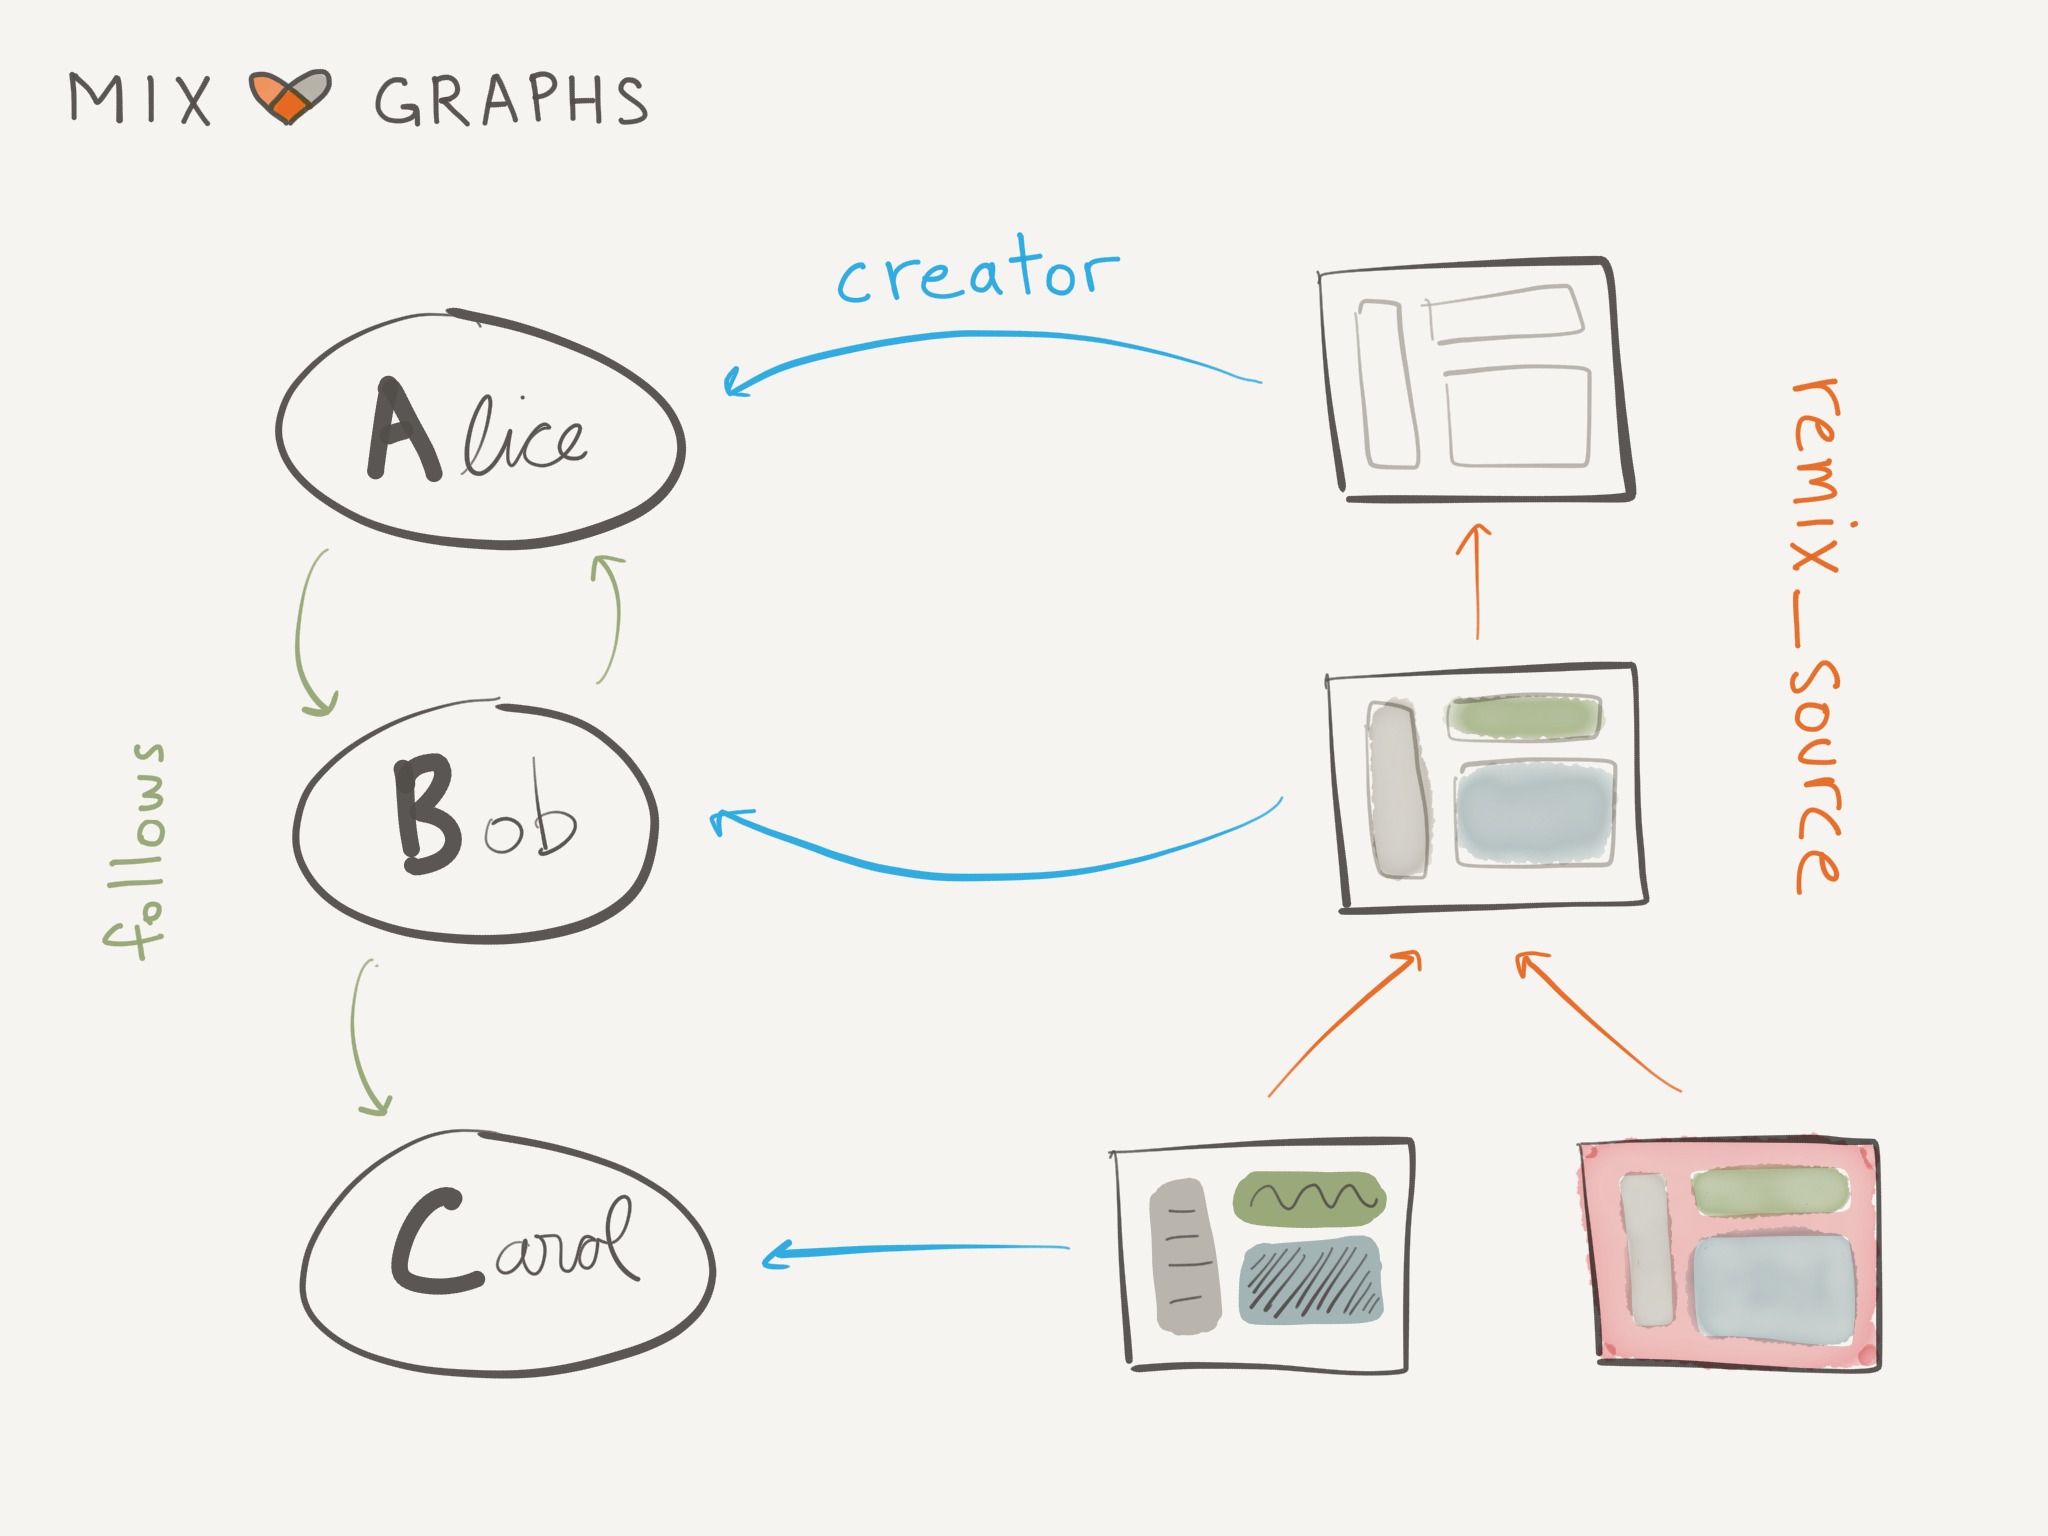 MIX GRAPHS
creator
Alice
remix_source
follows
Bob
Carol